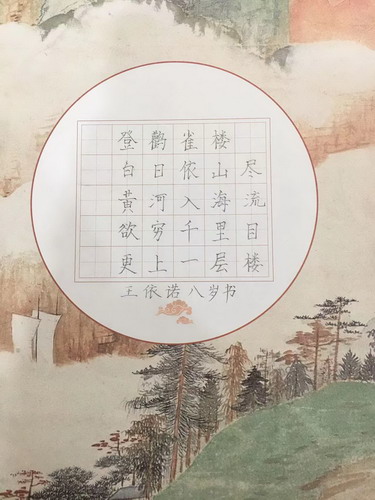 登鹳雀楼
白日依山尽
黄河入海流
欲穷千里目
更上一层楼
王依诺八岁书